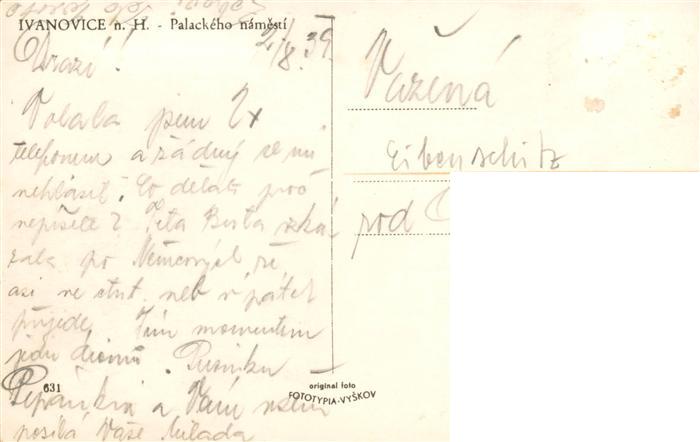 IVANOVICE n. H. - Palackého náměstí
2/8. 39
Drazí!
Volala jsem 2x
telefonem a žádný se mi
nehlásil. Co děláte proč
nepíšete? Teta Berta vzká-
zala po Němcových že
asi ve čtvrt. neb v pátek
přijede. Tím momentem
jedu domů.
631
Pepánkovi a Vám
posílá Vaše Milada
original foto
FOTOTYPIA-VYŠKOV
Vážená
Eibenschitz
pod